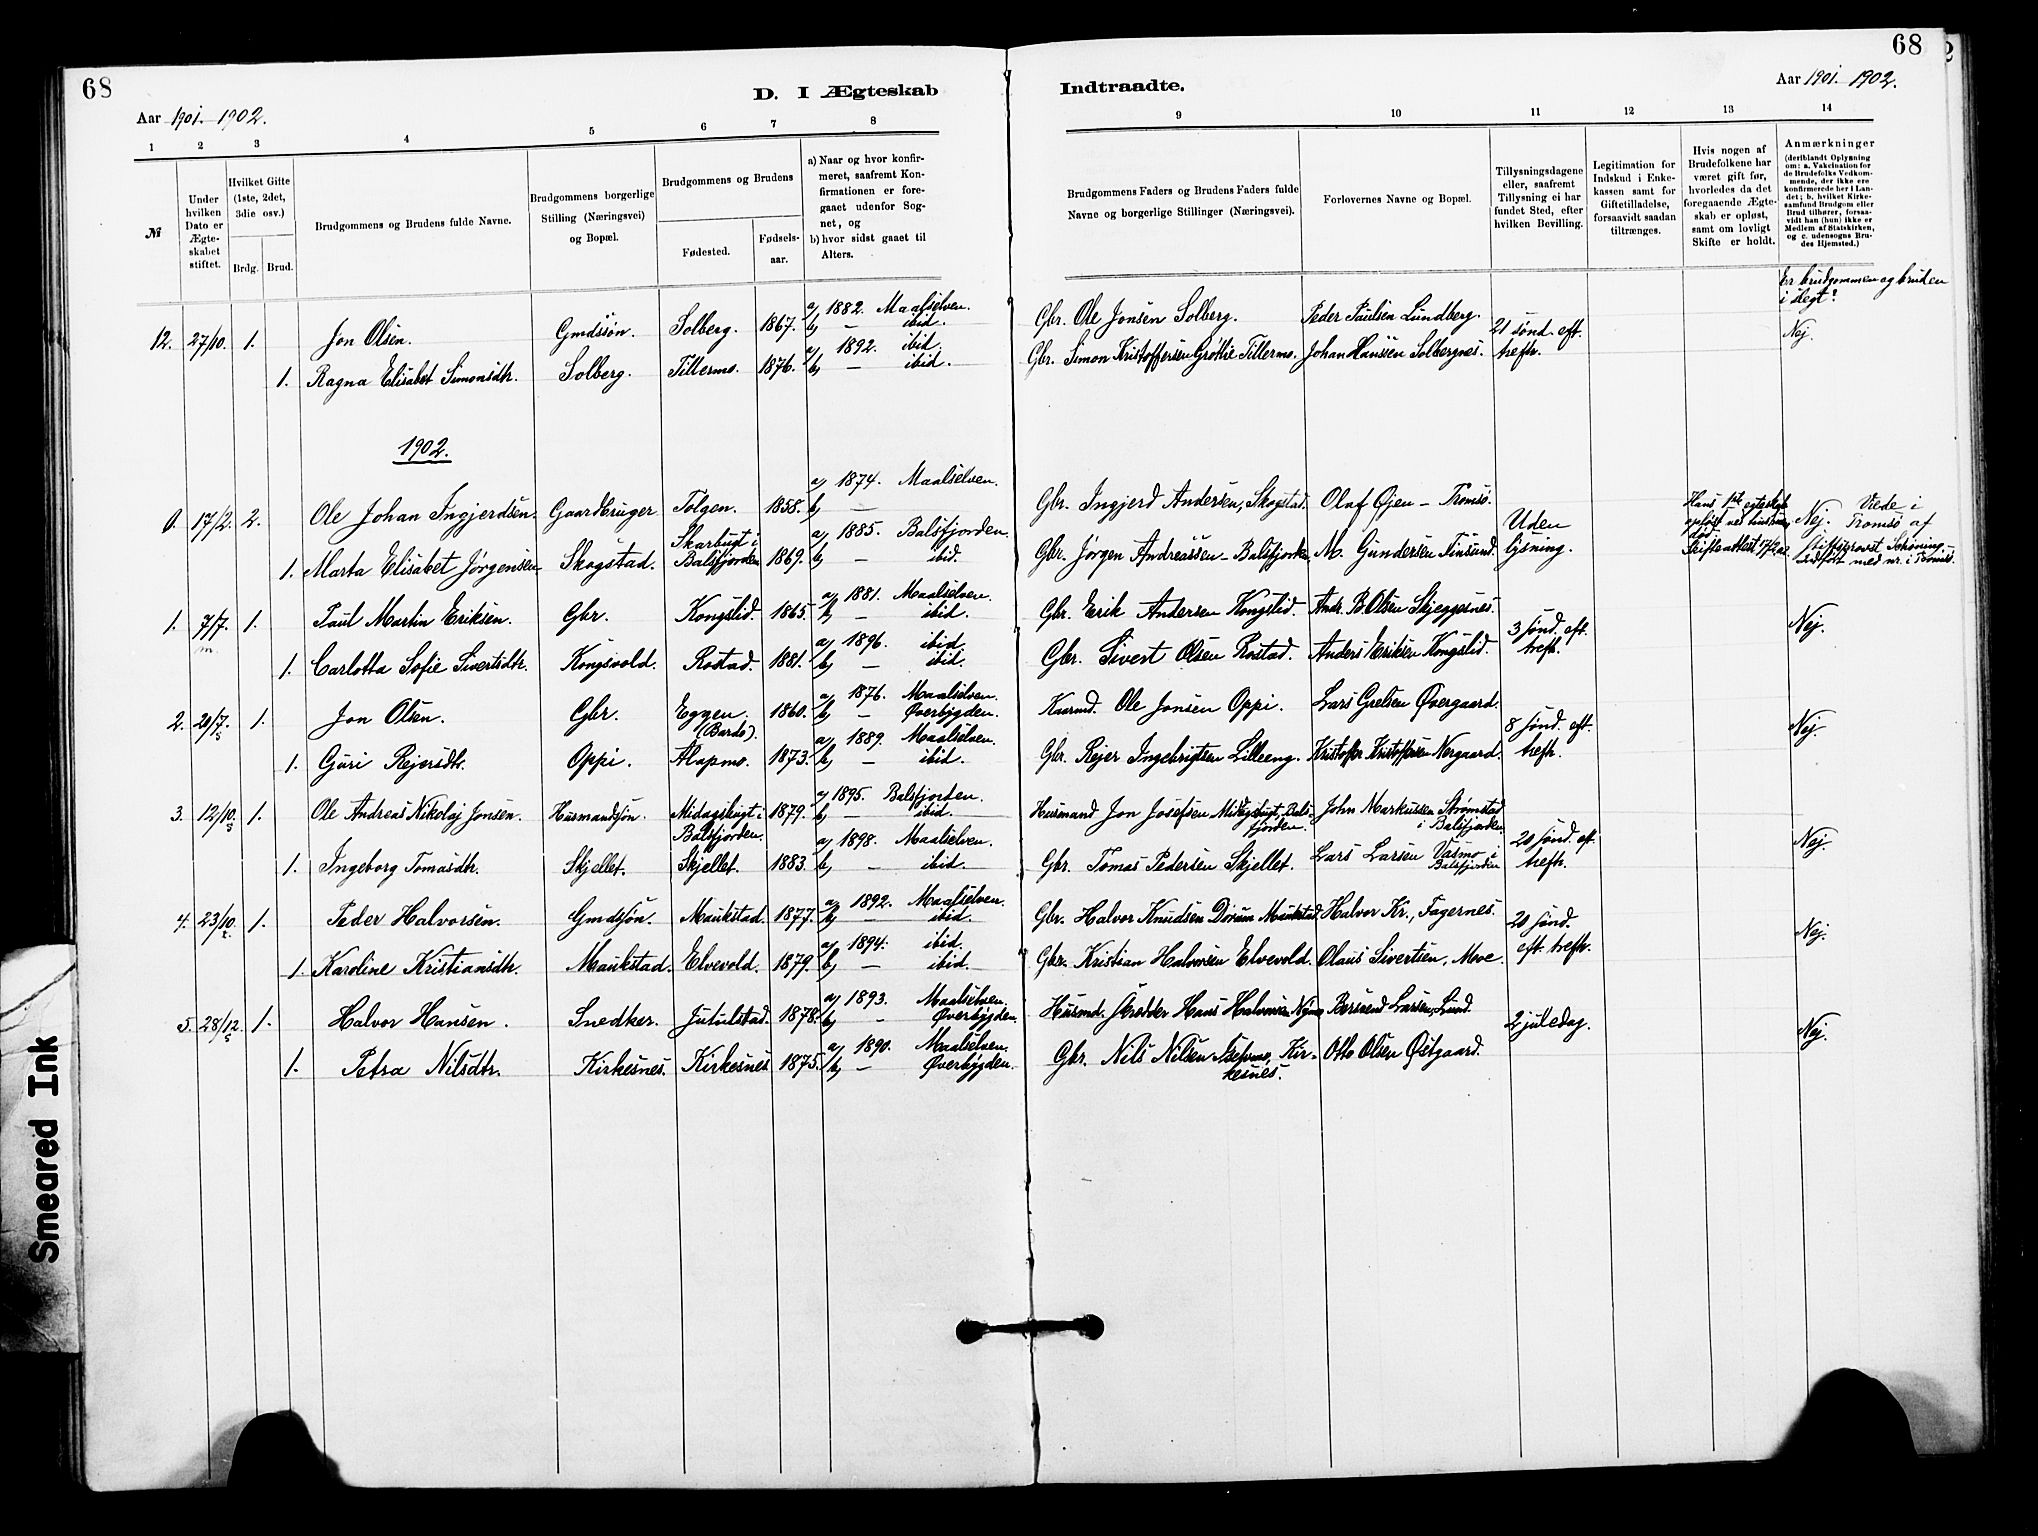 68
D. I Ægteskab
Aar 1901. 1902.
1 2 3 4 5 6 7 8
№
Under hvilken Dato er Ægteskabet stiftet.
Hvilket Gifte (1ste, 2det, 3die osv.)
Brdg. Brud.
Brudgommens og Brudens fulde Navne.
Brudgommens borgerlige Stilling (Næringsvei) og Bopæl.
Brudgommens og Brudens
Fødested.
Fødselsaar.
a) Naar og hvor konfirmeret, saafremt Konfirmationen er foregaaet udenfor Sognet, og
b) hvor sidst gaaet til Alters.
12. 27/10. 1. Jon Olsen. Gmdssøn. Solberg. 1867. a) 1882. Maalselven. b) — ibid.
1. Ragna Elisabet Simonsdtr. Solberg. Tillermo. 1876. a) 1892. ibid. b) — ibid.
1902.
0. 17/2. 2. Ole Johan Ingjerdsen. Gaardbruger Tolgen. 1858. a) 1874. Maalselven. b) —
1. Marta Elisabet Jørgensen Skogstad. Skarbugt i Balsfjorden 1869. a) 1885. Balsfjorden. b) — ibid.
1. 7/7. 1. Paul Martin Eriksen. Gbr. Kongslid. 1865. a) 1881. Maalselven. b) — ibid.
1. Carlotta Sofie Sivertsdtr. Kongsvold. Rostad. 1881. a) 1896. ibid. b) — ibid.
2. 20/7. 1. Jon Olsen. Gbr. Eggen (Bardo). 1860. a) 1876. Maalselven. b) — Øverbygden.
1. Guri Rejersdtr. Oppi. Alapmo. 1873. a) 1889. Maalselven. b) — ibid.
3. 12/10. 1. Ole Andreas Nikolaj Jonsen. Husmandsøn. Midagsbugt i Balsfjorden. 1879. a) 1895. Balsfjorden. b) — ibid.
1. Ingeborg Tomasdtr. Skjellet. Skjellet. 1883. a) 1898. Maalselven. b) — ibid.
4. 23/10. 1. Peder Halvorsen. Gmdsøn. Maukstad. 1877. a) 1892. Maalselven. b) — ibid.
1. Karoline Kristiansdtr. Maukstad. Elvevold. 1879. a) 1894. ibid. b) — ibid.
5. 28/12. 1. Halvor Hansen. Snedker. Jutulstad. 1878. a) 1893. Maalselven. b) — Øverbygden.
1. Petra Nilsdtr. Kirkesnes. Kirkesnes 1875. a) 1890. Maalselven. b) — Øverbygden.
68
Indtraadte.
Aar 1901. 1902.
9 10 11 12 13 14
Brudgommens Faders og Brudens Faders fulde Navne og borgerlige Stillinger (Næringsvei).
Forlovernes Navne og Bopæl.
Tillysningsdagene eller, saafremt Tillysning ei har fundet Sted, efter hvilken Bevilling.
Legitimation for Indskud i Enkekassen samt for Giftetilladelse, forsaavidt saadan tiltrænges.
Hvis nogen af Brudefolkene har været gift før, hvorledes da det foregaaende Ægteskab er opløst, samt om lovligt Skifte er holdt.
Anmærkninger
(deriblandt Oplysning om: a. Vakcination for de Brudefolks Vedkommende, der ikke ere konfirmerede her i Landet; b. hvilket Kirkesamfund Brudgom eller Brud tilhører, forsaavidt han (hun) ikke er Medlem af Statskirken, og c. udensogns Brudes Hjemsted.)
Er brudgommen og bruden i slegt?
Gbr. Ole Jonsen Solberg. Peder Paulsen Lundberg. 21 sønd. eft. trefh. Nej.
Gbr. Simon Kristoffersen Grøttlie Tillermo. Johan Hanssen Solbergnes.
Gbr. Ingjerd Andersen, Skogstad Olaf Øjen – Tromsø. Uden lysning. Hans 1st egteskab opløst ved hustruens død Skifteattest 17/2 02 Nej. Viede i Tromsø af stiftsprovst Schøning indført med nr. i Tromsø.
Gbr. Jørgen Andreassen – Balsfjorden M. Gundersen Finsund.
Gbr. Erik Andersen Kongslid. Andr. B. Olsen Skjeggesnes. 3 sønd. eft. trefh. Nej.
Gbr. Sivert Olsen Rostad. Anders Eriksen Kongslid.
Kaarmd. Ole Jonsen Oppi. Lars Grelsen Øvergaard. 8 sønd. eft. trefh. Nej.
Gbr. Rejer Ingebrigtsen Lilleeng. Kristoffer Kristoffersen Nergaard.
Husmand Jon Josefsen Midagsbugt, Balsfjorden. John Markussen Strømstad i Balsfjorden 20 sønd. eft. trefh. Nej.
Gbr. Tomas Pedersen Skjellet. Lars Larsen Vasmo i Balsfjorden
Gbr. Halvor Knudsen Maukstad. Halvor Kr., Fagernes. 20 sønd. eft. trefh. Nej.
Gbr. Kristian Halvorsen Elvevold. Olaus Sivertsen, Move.
Husmd. Skredder Hans Halvorsen Bersvend Larsen, Lund. 2 juledag. Nej.
Gbr. Nils Nilsen Kirkesnes. Otto Olsen Østgaard.
Smeared Ink